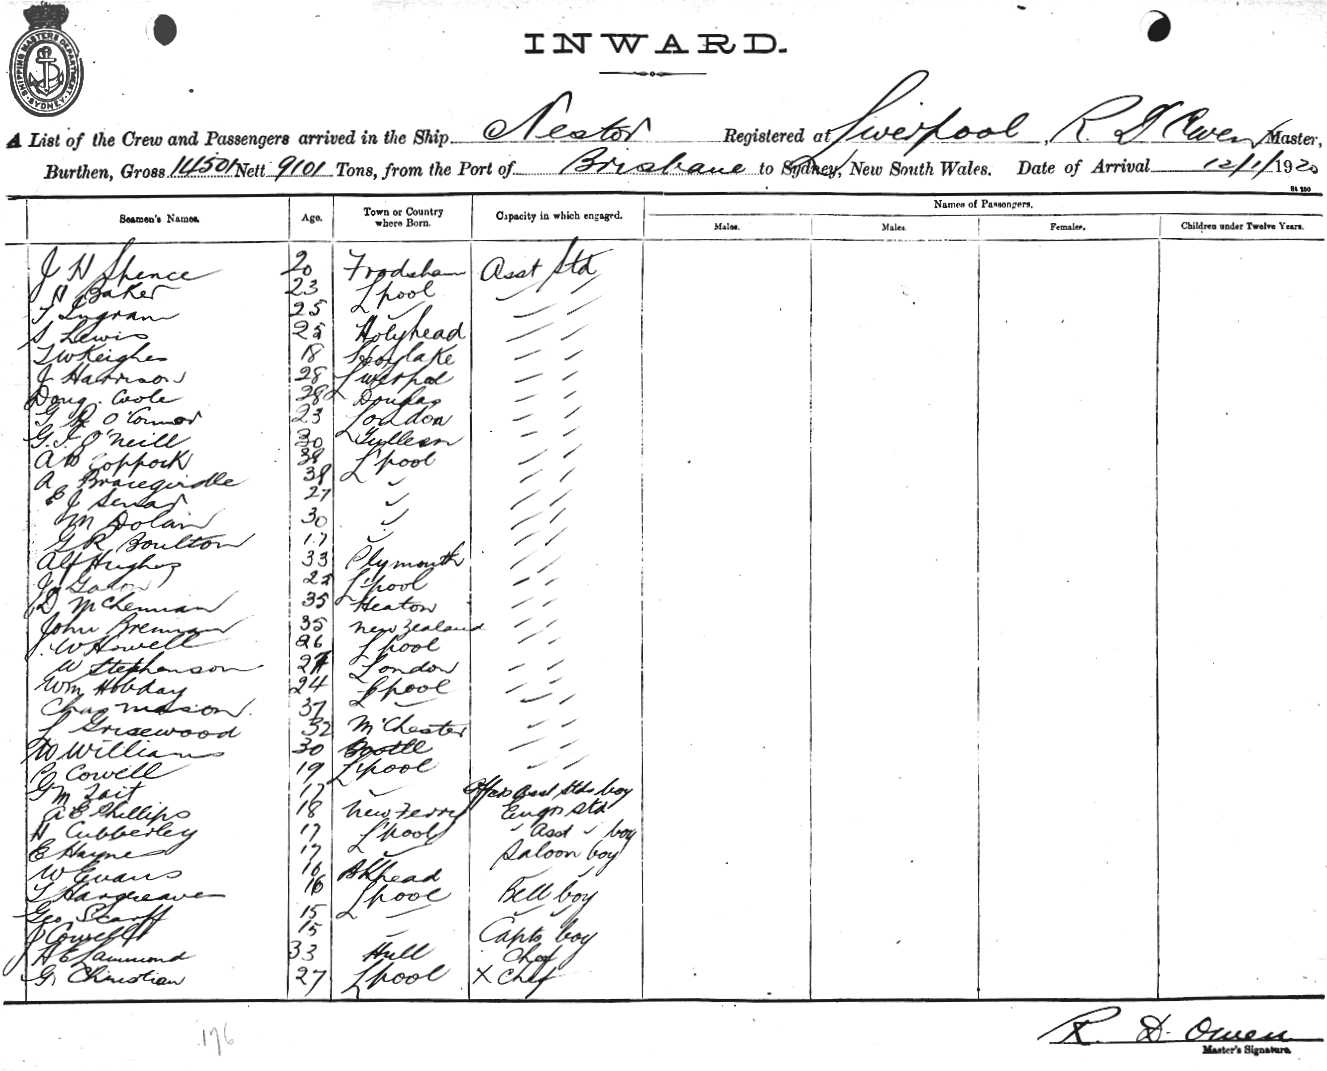 SHIPPING MASTERS DEPARTMENT SYDNEY
INWARD.
A List of the Crew and Passengers arrived in the Ship Nestor Registered at Liverpool, R D Owen Master,
Burthen, Gross 14501 Nett 9101 Tons, from the Port of Brisbane to Sydney, New South Wales. Date of Arrival 12/1/1920
Seamen's Names. Age. Town or Country where Born. Capacity in which engaged. Names of Passengers.
Males. Males. Females. Children under Twelve Years.
J H Spence 20 Frodsham Asst Std
H Baker 23 L'pool " "
T Ingram 25 " " "
S Lewis 25 Holyhead " "
T W Keighes 18 Hoylake " "
J Harrison 28 Liverpool " "
Doug. Coole 28 Douglas " "
G O'Connor 23 London " "
G. J. O'Neill 30 " "
A B Coppock 38 L'pool " "
A Bracegirdle 38 " " "
E J 27 " " "
M Dolan 30 " " "
G R Boulton 17 " " "
Alf Hughes 33 Plymouth " "
22 L'pool " "
D McLennan 35 Heaton " "
John Brennan 35 New Zealand " "
J. W Howell 26 L'pool " "
W Stephenson 27 London " "
Wm Hobday 24 L'pool " "
Chas Mason. 37 " " "
L Grisewood 32 M'Chester " "
W Williams 30 Bootle " "
C Cowell 19 L'pool " "
G M Tait 17 " Offcrs Asst Stds boy
A E Phillips 18 New Ferry Engrs Std
H Cubberley 17 L'pool " Asst " boy
E Haynes 17 " Saloon boy
W Evans 16 B'head " "
T Hargreaves 16 L'pool Bell boy
Geo Scarff 15 " " "
J Cowell 15 " Capts boy
H E Lammond 33 Hull Chef
G. Christian 27 L'pool X Chef
176
R. D. Owen
Master's Signature.